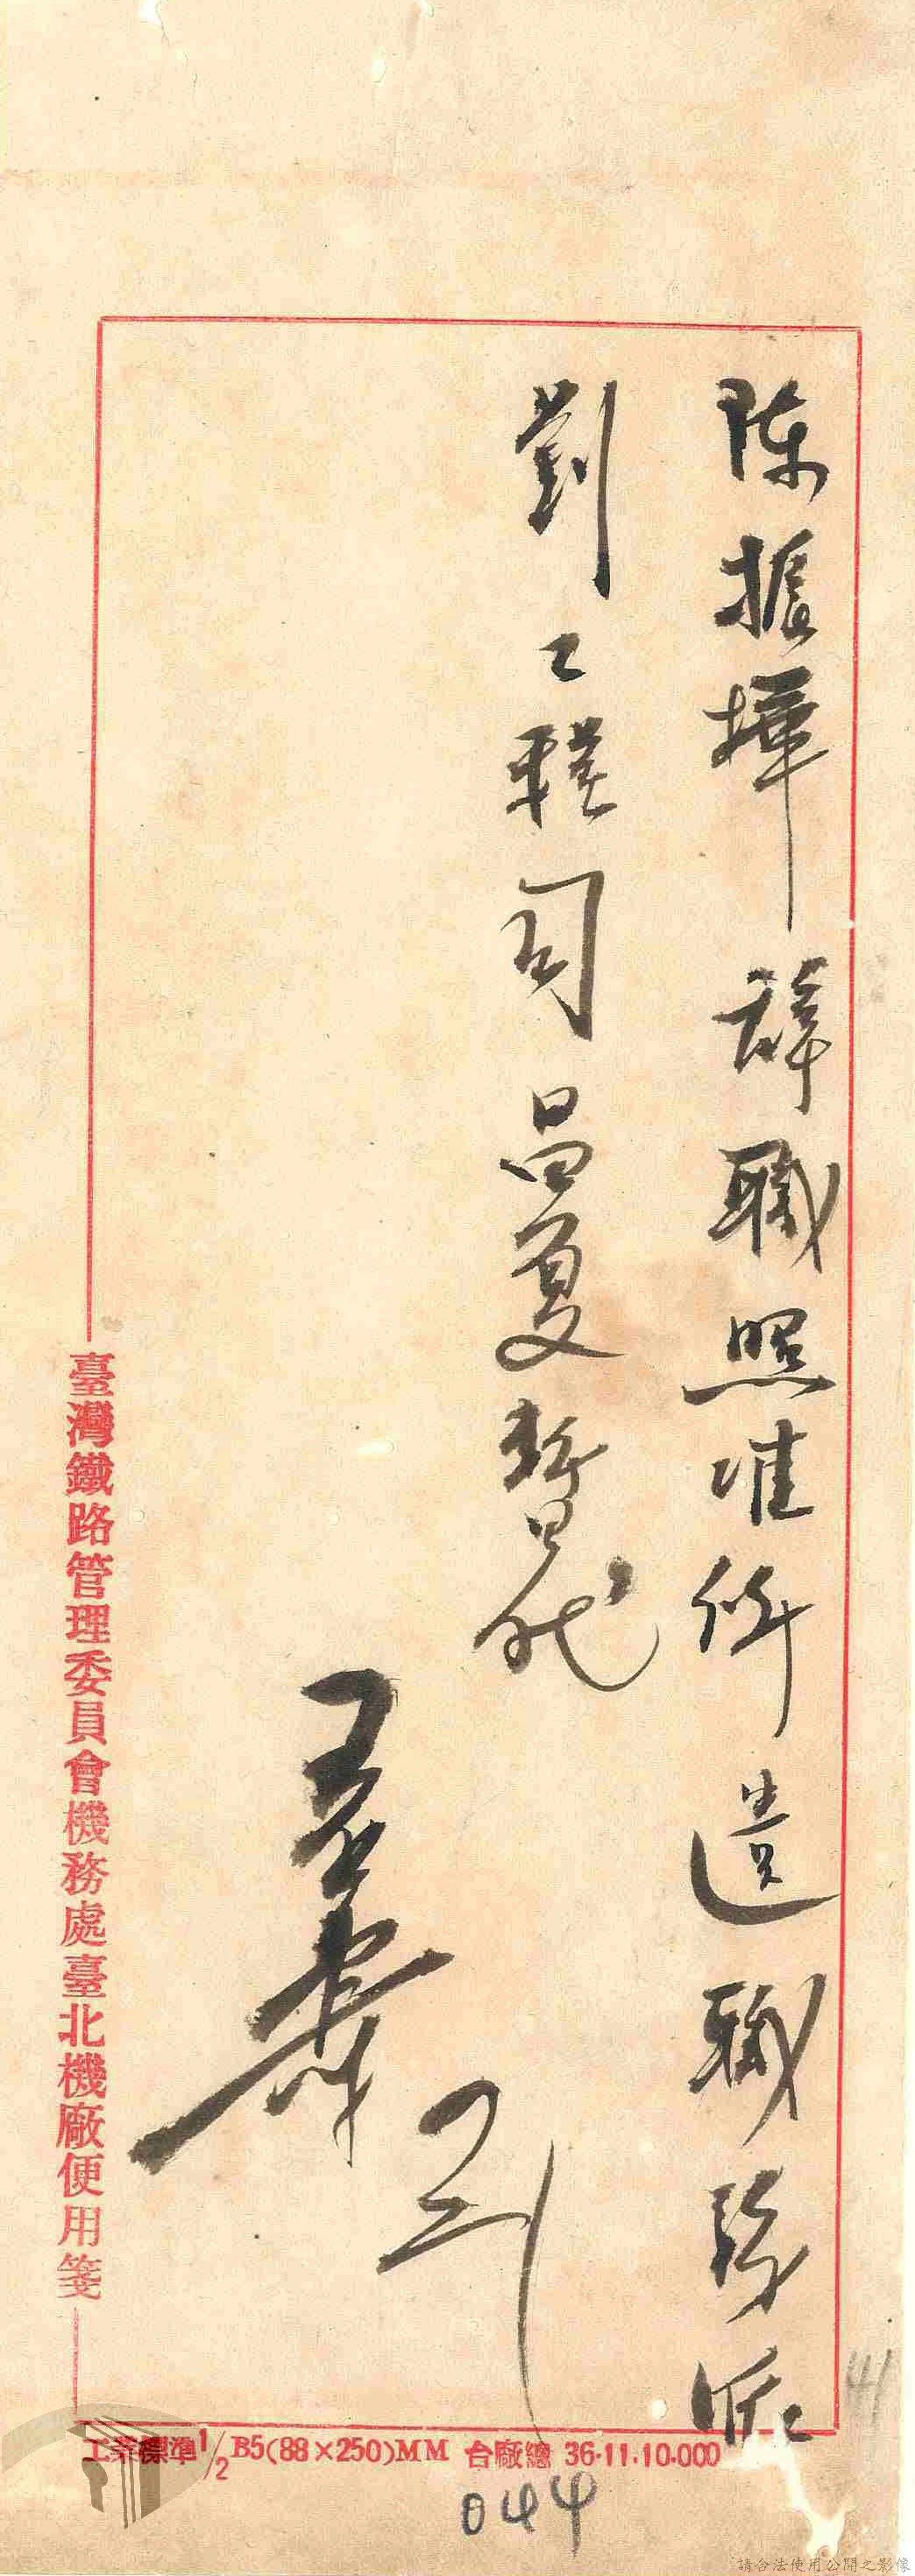 陳振樺辭職照准所遺職務派
劉工程司昌夏暫代
臺灣鐵路管理委員會機務處臺北機廠便用箋
工業標準1/2 B5(88×250)MM 台廠總 36·11·10·000
044
41
請合法使用公開之影像